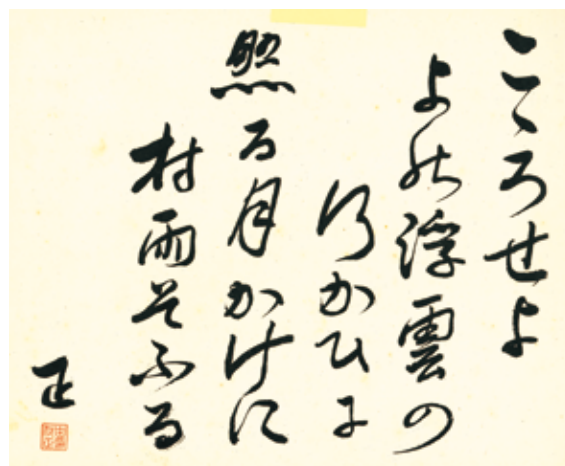 こゝろせよ
よの浮雲の
行かひに
照る月かけに
村雨そふる
正